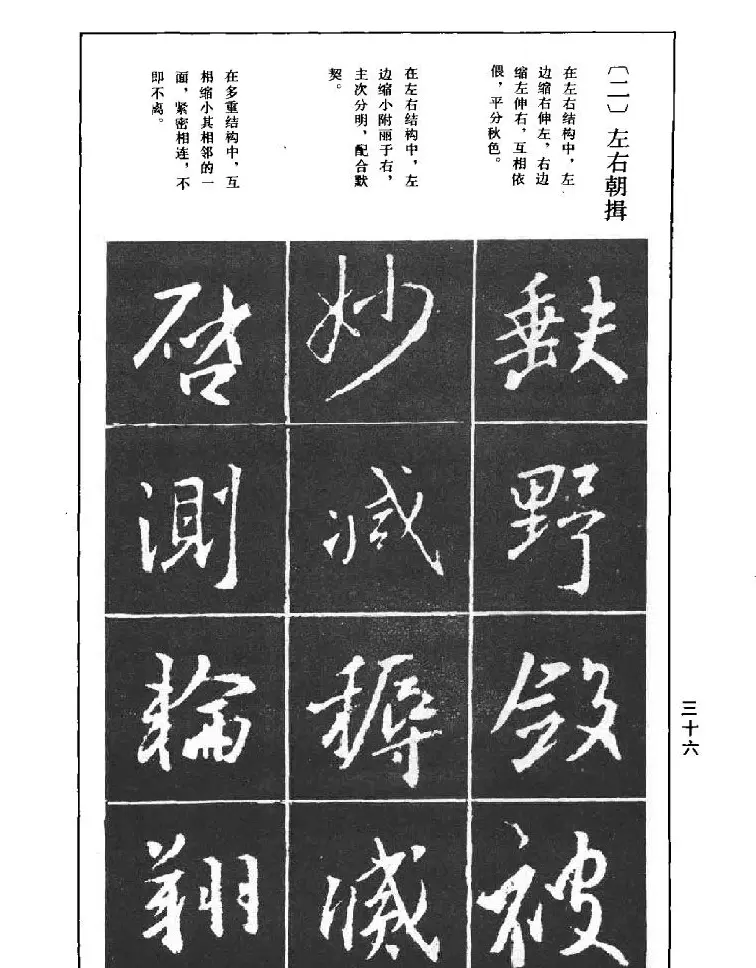 〔二〕左右朝揖
在左右结构中，左
边缩右伸左，右边
缩左伸右，互相依
偎，平分秋色。
在左右结构中，左
边缩小附丽于右，
主次分明，配合默
契。
在多重结构中，互
相缩小其相邻的一
面，紧密相连，不
即不离。
野
被
妙
減
耨
啓
測
輪
翔
三十六